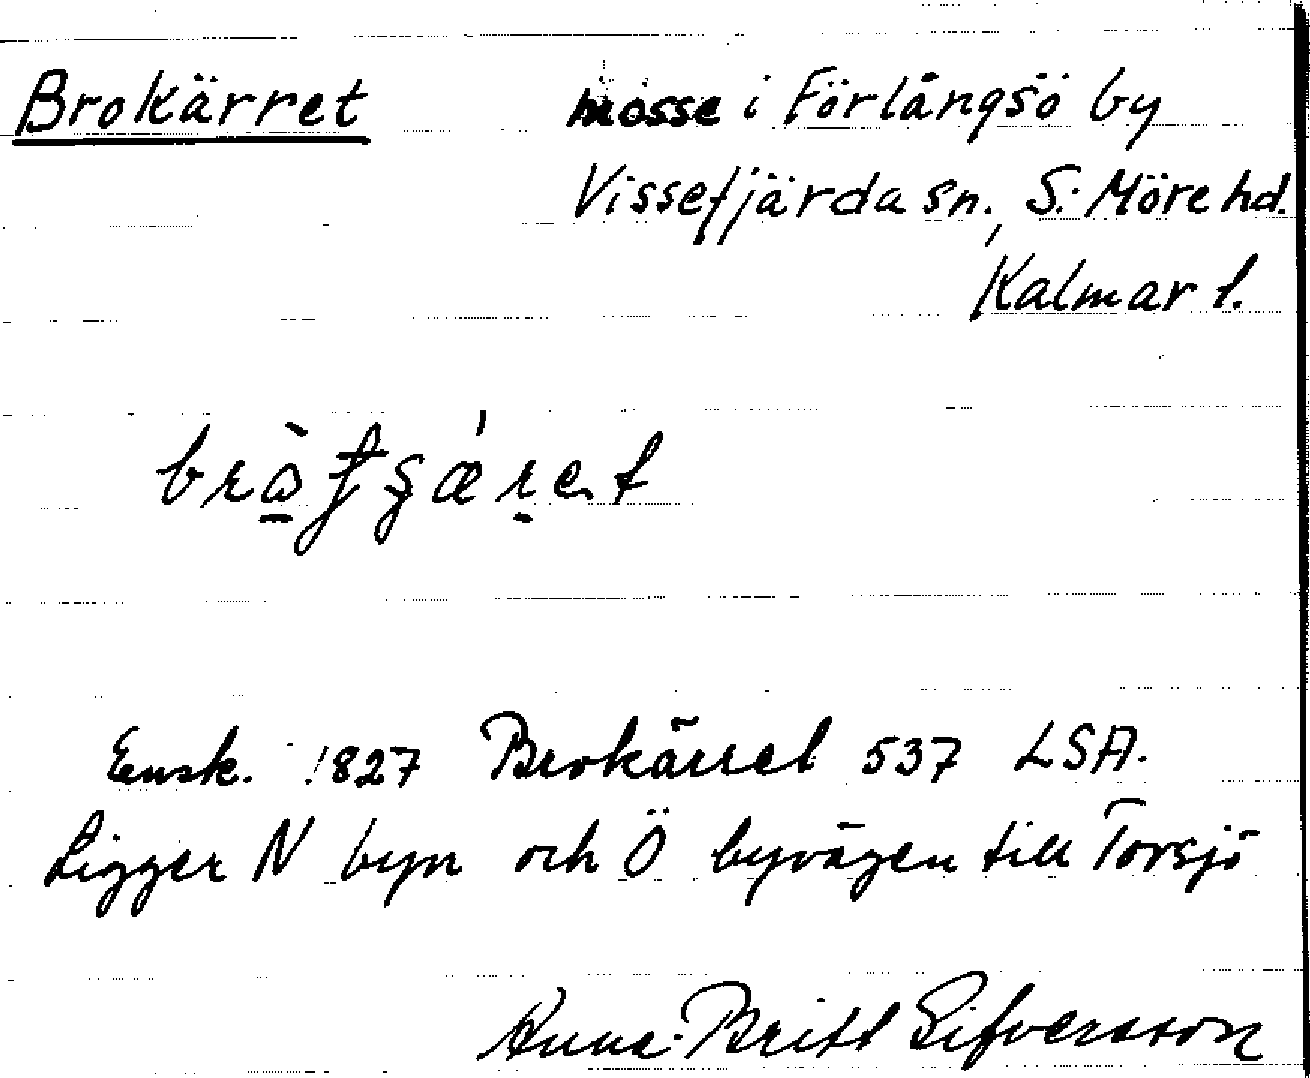 Brokärret mosse i Förlångsö by
Vissefjärda sn., S. Möre hd.
Kalmar l.
Ensk. 1827 Brokärret 537 LSA.
Ligger N byn och Ö byvägen till Torsjö
Anna-Britt Sifversson